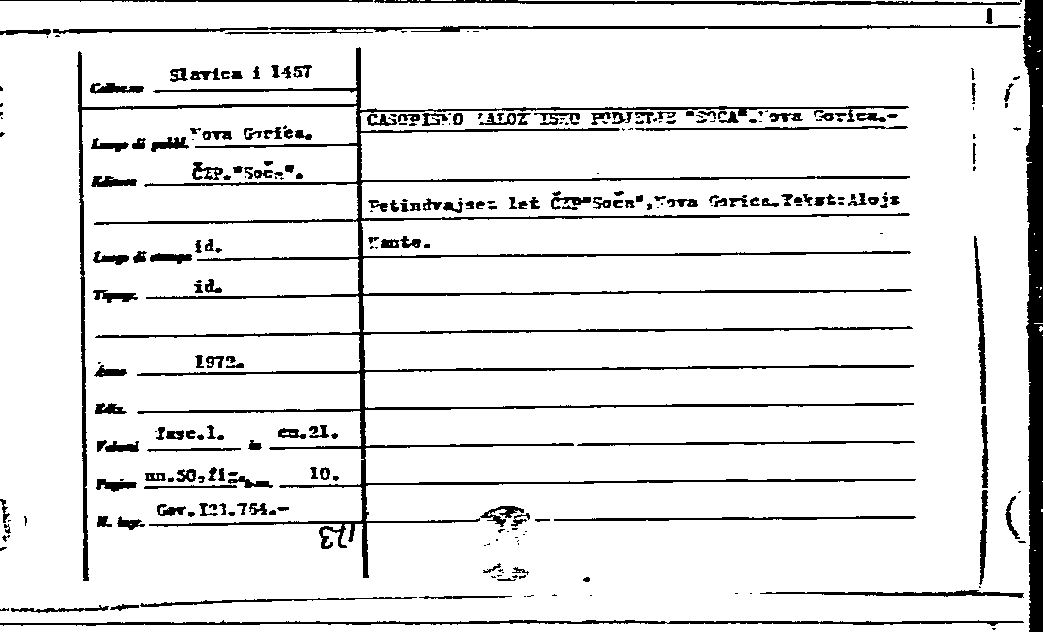 1
Colloc.ne Slavica i I457
Luogo di pubbl. Nova Gorica.
Editore ČZP."Soča".
Luogo di stampa id.
Tipogr. id.
Anno 1972.
Ediz.
Volumi fasc.1. in cm.21.
Pagine nn.50,fig. b.n. 10.
N. ingr. Gov.I21.764.-
173
CASOPISNO ZALOZ ISKO PODJETJE "SOCA".Nova Gorica.-
Petindvajset let ČZP"Soča",Nova Gorica.Tekst:Alojz